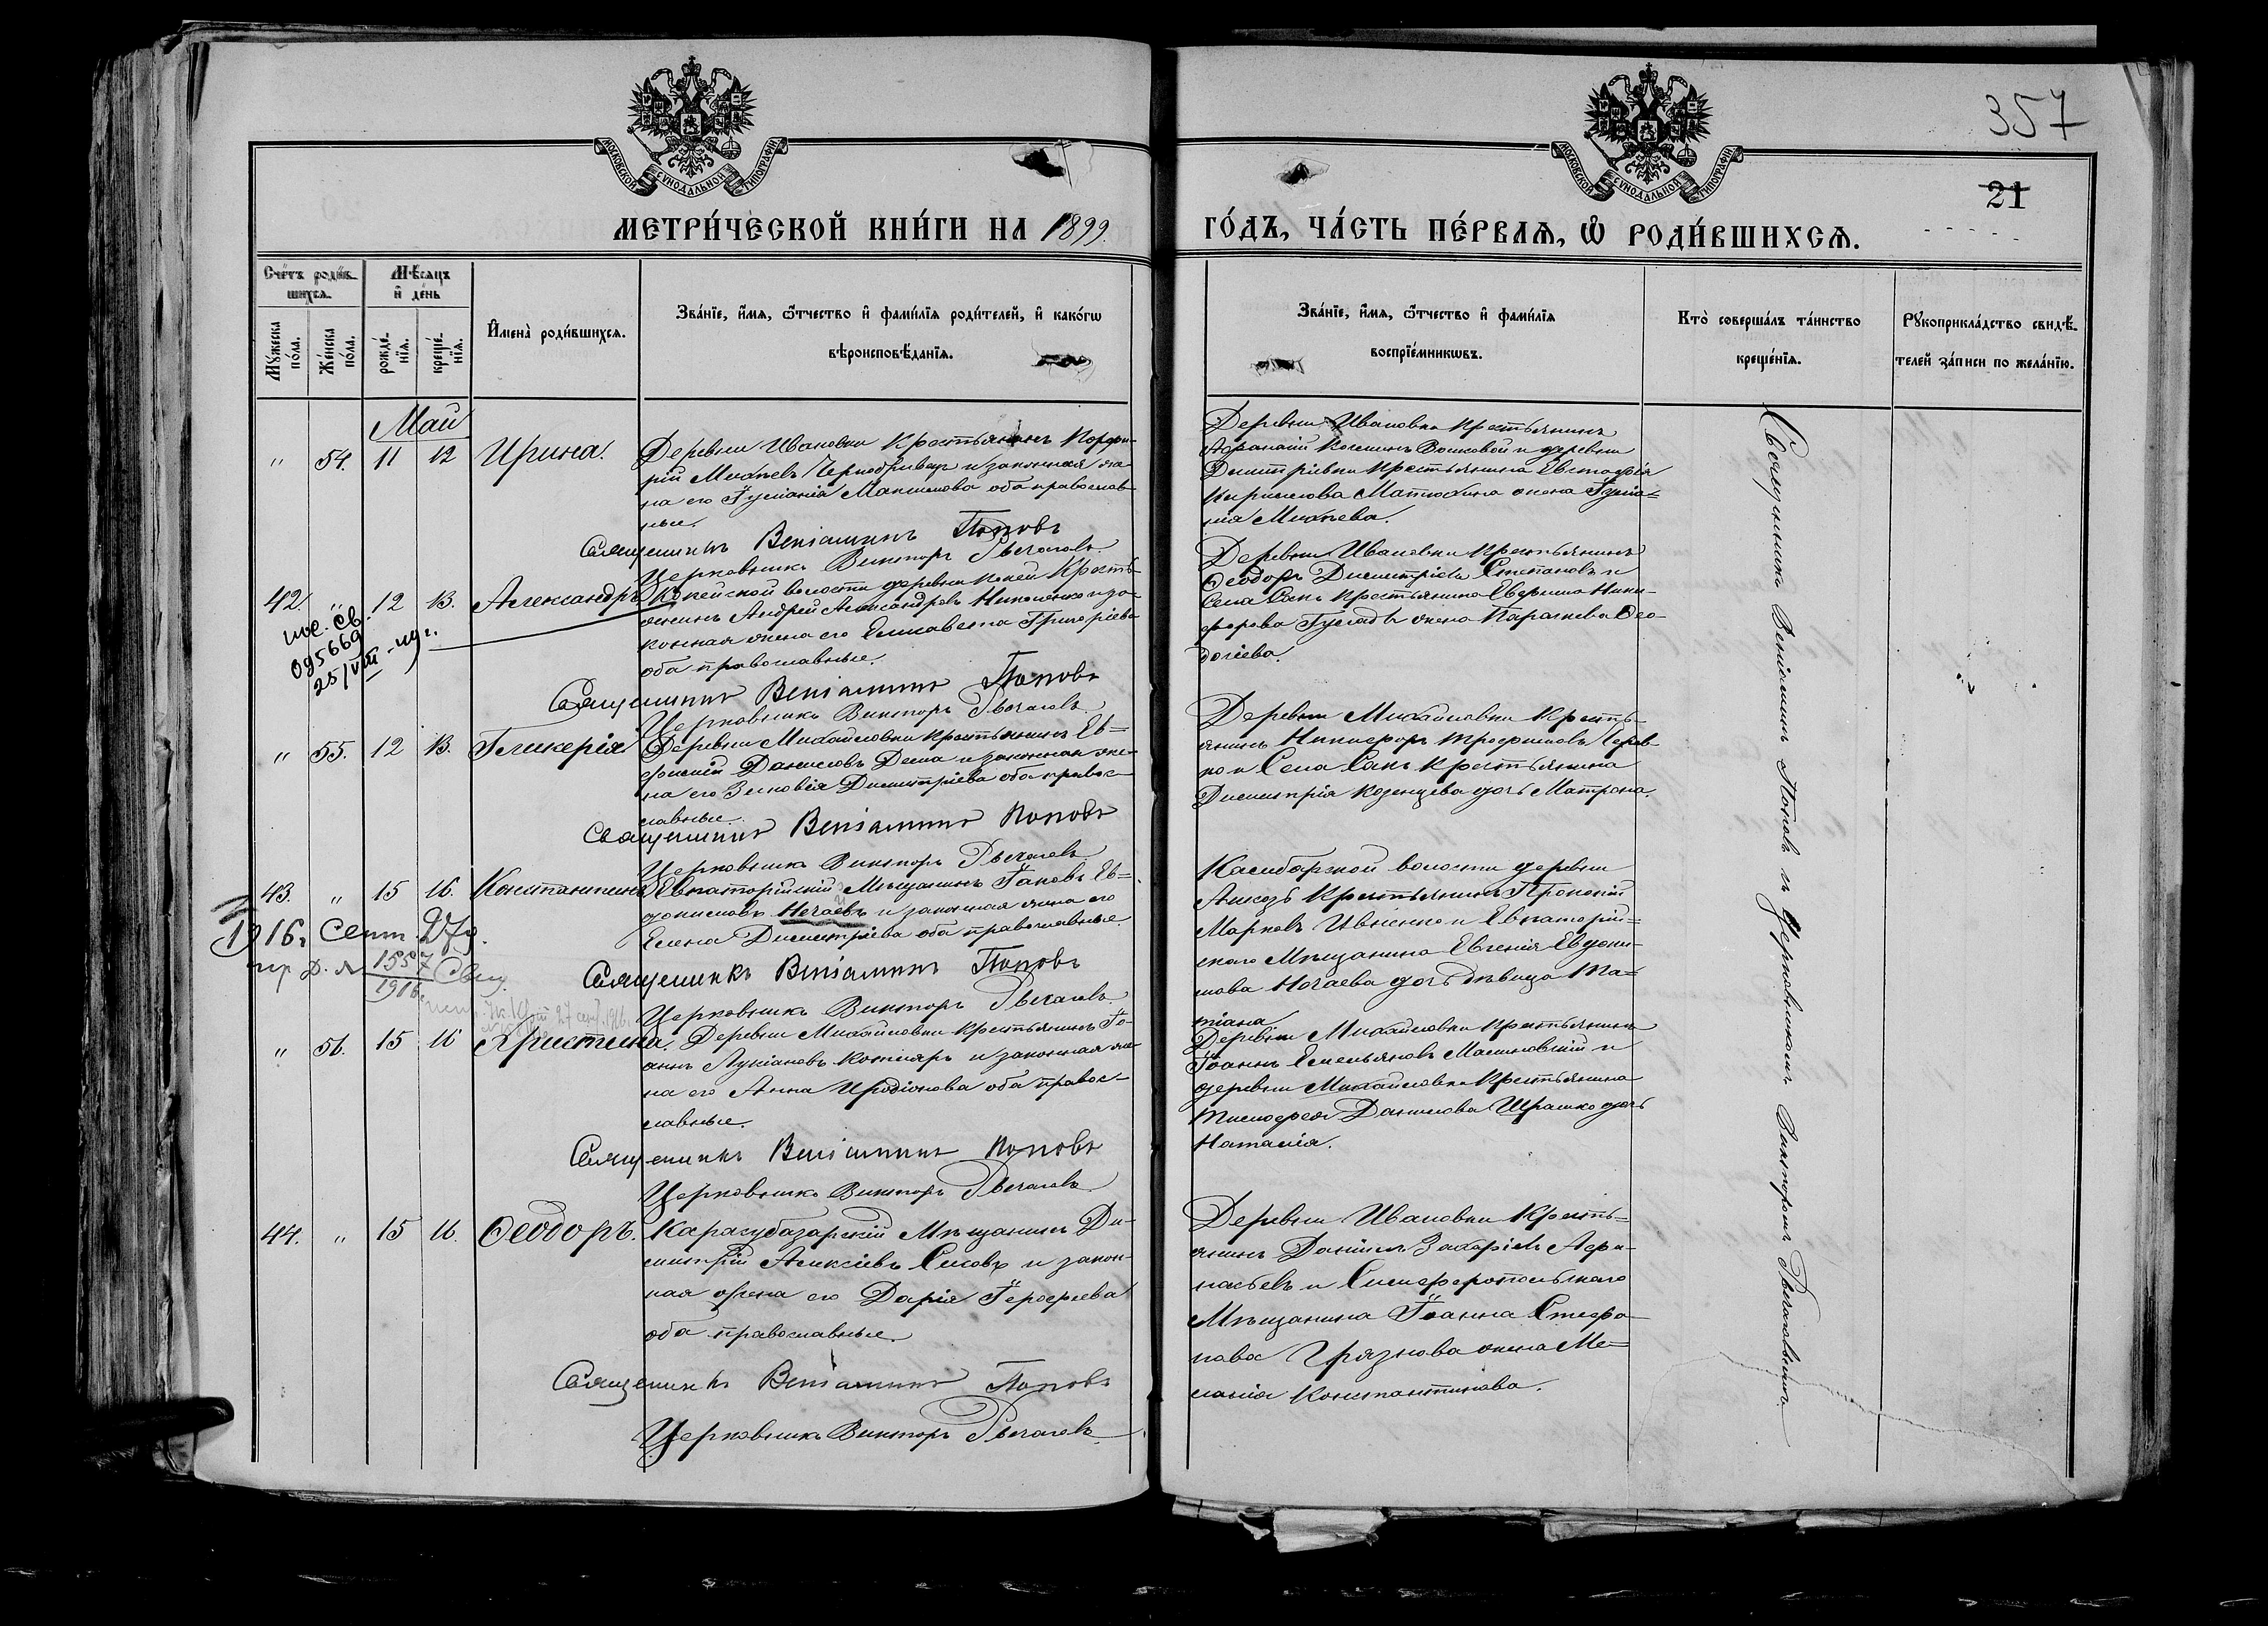 357
21
МОСКОВСКОЙ СѴНОДАЛЬНОЙ ТИПОГРАФІИ
МОСКОВСКОЙ СѴНОДАЛЬНОЙ ТИПОГРАФІИ
МЕТРИ́ЧЕСКОЙ КНИ́ГИ НА 1899.
ГО́ДЪ, ЧА́СТЬ ПЕ́РВАѦ, Ѽ РОДИ́ВШИХСѦ.
Сче́тъ роди́вшихсѧ.
Мѣ́сѧцъ и҆ де́нь
Мꙋ́жеска по́ла.
Же́нска по́ла.
рожде́нїѧ.
креще́нїѧ.
И҆мена̀ роди́вшихсѧ.
Зва́нїе, и҆́мѧ, ѻ҆́тчество и҆ фами́лїѧ роди́телей, и҆ како́гѡ
вѣроисповѣ́данїѧ.
Зва́нїе, и҆́мѧ, ѻ҆́тчество и҆ фами́лїѧ
воспрїе́мникѡвъ.
Кто̀ соверша́лъ та́инство
креще́нїѧ.
Рꙋкоприкла́дство свидѣ́-
телей за́писи по жела́нїю.
Май
" 54. 11 12 Ирина.
Деревни Ивановки Крестьянинъ Порфи-
рій Михеевъ Чернобривецъ и законная же-
на его Іуліанія Максимова оба православ-
ные.
Священникъ Веніаминъ Поповъ
Церковникъ Викторъ
Деревни Ивановки Крестьянинъ
Афанасій и деревни
Дмитріевки Крестьянина Евстафія
Кириллова жена Іуліа-
нія Михеева.
42. " 12 13. Александръ
Кокейской волости деревни Крестья-
нинъ Андрей Александровъ и за-
конная жена его Елисавета Григоріева
оба православные.
Священникъ Веніаминъ Поповъ
Церковникъ Викторъ
095669
25/VIII
Деревни Ивановки Крестьянинъ
Ѳеодоръ Димитріевъ Степановъ и
Села Сакъ Крестьянина Ники-
форова жена Параскева Ѳео-
досіева.
" 55. 12 13. Гликерія
Деревни Михайловки Крестьянинъ Ев-
фимій Даниловъ и законная же-
на его Зиновія Димитріева оба правос-
лавные.
Священникъ Веніаминъ Поповъ
Церковникъ Викторъ
Деревни Михайловки Кресть-
янинъ Никифоръ Трофимовъ
и Села Сакъ Крестьянина
Димитрія дочь Матрона.
43. " 15 16. Константинъ
Евпаторійскій Мѣщанинъ Іаковъ Ев-
докимовъ Нечаевъ и законная жена его
Елена Димитріева оба православные.
Священникъ Веніаминъ Поповъ
Церковникъ Викторъ
1916 г. Сент. 27 д.
1557
1916
волости деревни
Крестьянинъ Прокопій
Марковъ Ивженко и Евпаторій-
скаго Мѣщанина Евгенія Евдоки-
мова Нечаева дочь дѣвица Та-
тіана
" 56. 15 16 Христина.
Деревни Михайловки Крестьянинъ Іо-
аннъ Лукіановъ и законная же-
на его Анна Иродіонова оба правос-
лавные.
Священникъ Веніаминъ Поповъ
Церковникъ Викторъ
Деревни Михайловки Крестьянинъ
Іоаннъ Емельяновъ и
деревни Михайловки Крестьянина
Тимофея Данилова дочь
Наталія.
44. " 15 16. Ѳеодоръ.
Карасубазарскій Мѣщанинъ Ди-
митрій Алексіевъ и закон-
ная жена его Дарія Іерофеева
оба православные.
Священникъ Веніаминъ Поповъ
Церковникъ Викторъ
Деревни Ивановки Кресть-
янинъ Даніилъ Захаріевъ Афа-
насьевъ и Симферопольскаго
Мѣщанина Іоанна Стефа-
нова Грязнова жена Ме-
ланія Константинова.
Священникъ Веніаминъ Поповъ съ Церковникомъ Викторомъ